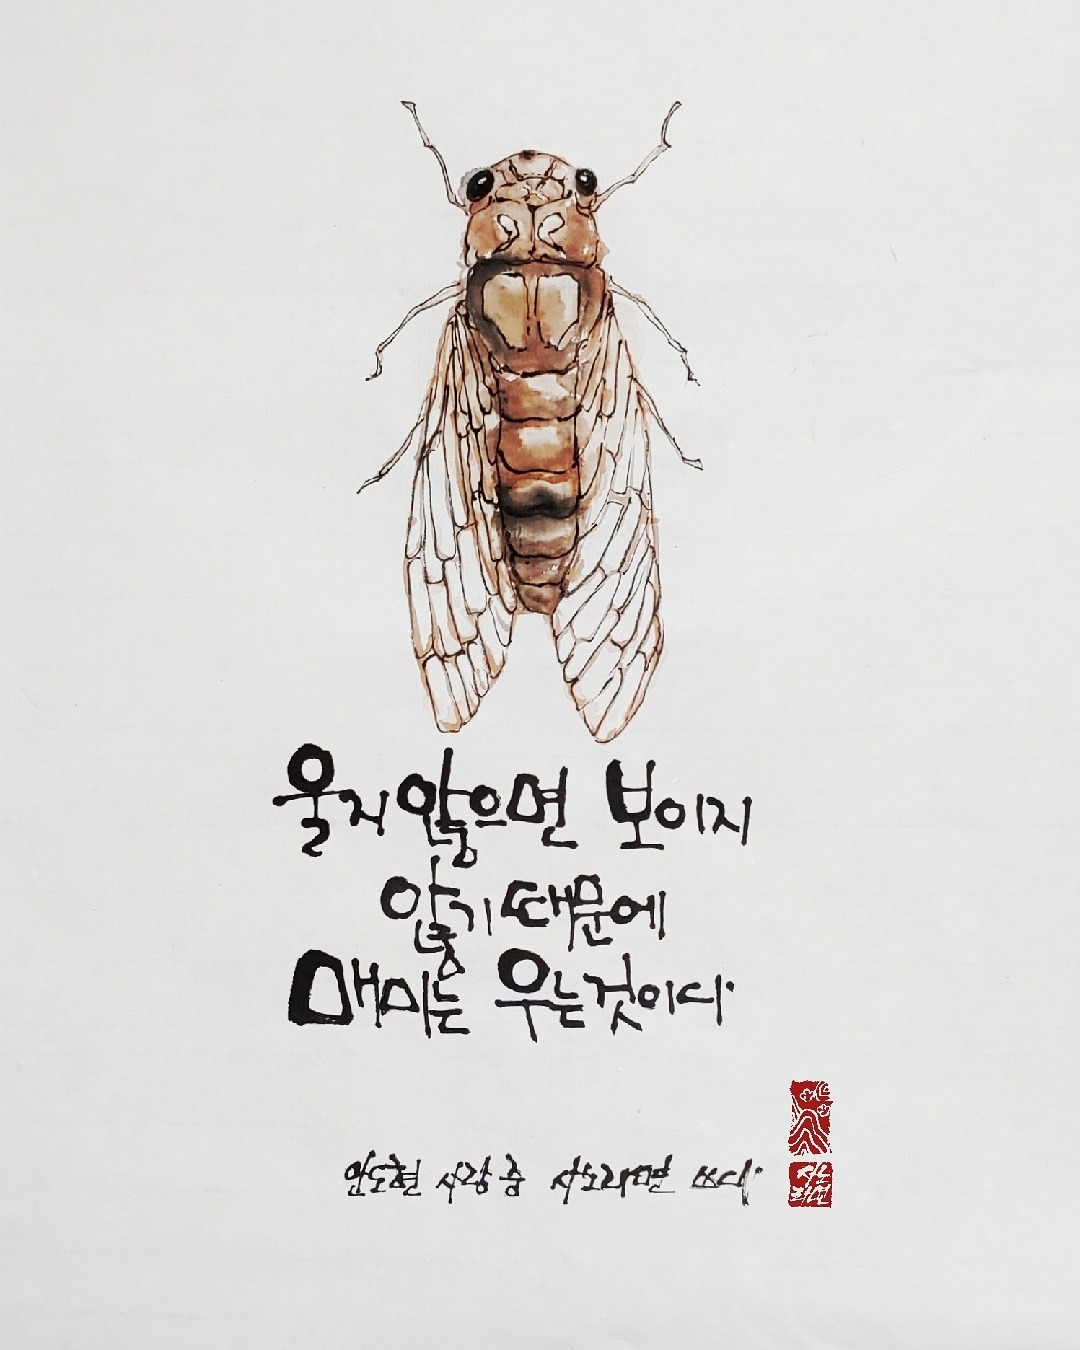 울지 않으면 보이지
않기 때문에
매미는 우는것이다
안도현 사랑 중 쓰다